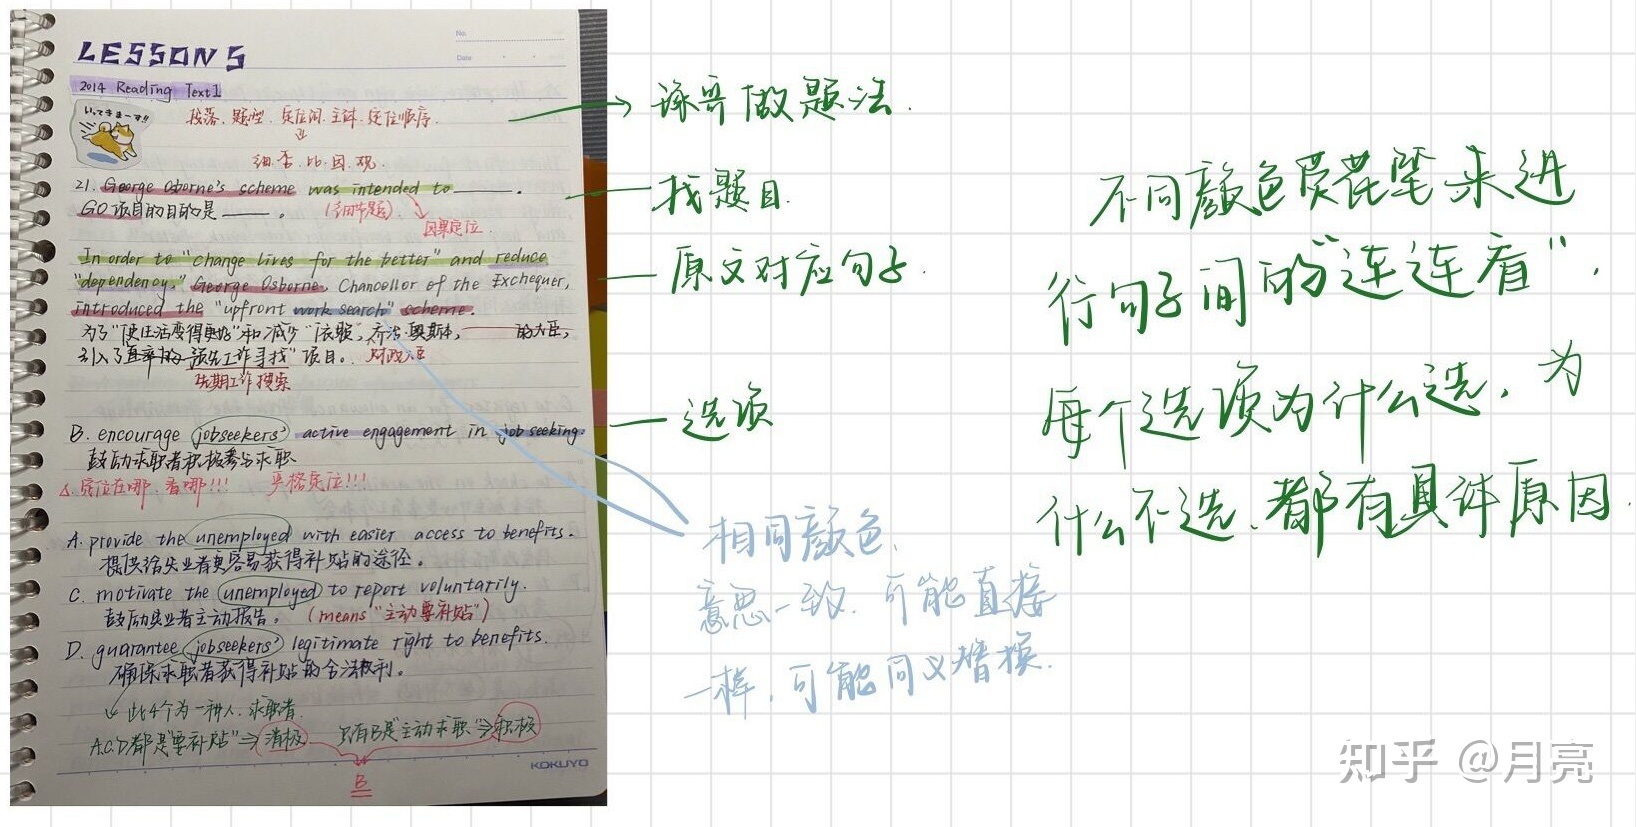 LESSON 5
No.
Date
2014 Reading Text1
いってきまーす!!
段落、题型、定位词、主体、定位顺序.
细.否.比.因.观.
21. George Osborne's scheme was intended to ______.
GO项目的目的是 ____ 。
因果定位.
In order to "change lives for the better" and reduce
"dependency," George Osborne, Chancellor of the Exchequer,
introduced the "upfront work search" scheme.
为了"使生活变得更好"和减少"依赖,乔治·奥斯本, 的大臣,
引入了直率的 预先工作寻找"项目。 财政大臣
先期工作搜索
B. encourage jobseekers' active engagement in job seeking.
鼓励求职者积极参与求职
△.定位在哪,看哪!!! 严格定位!!!
A. provide the unemployed with easier access to benefits.
提供给失业者更容易获得补贴的途径。
C. motivate the unemployed to report voluntarily.
鼓励失业者主动报告。 (means "主动要补贴")
D. guarantee jobseekers' legitimate right to benefits.
确保求职者获得补贴的合法权利。
此4个为一种人,求职者
A.C.D都是"要补贴"⇒消极 只有B是"主动求职"⇒积极
B
KOKUYO
逐哥做题法.
找题目.
原文对应句子.
选项
相同颜色,
意思一致.可能直接
一样,可能同义替换.
不同颜色荧光笔来进
行句子间的"连连看",
每个选项为什么选,为
什么不选,都有具体原因.
知乎 @月亮